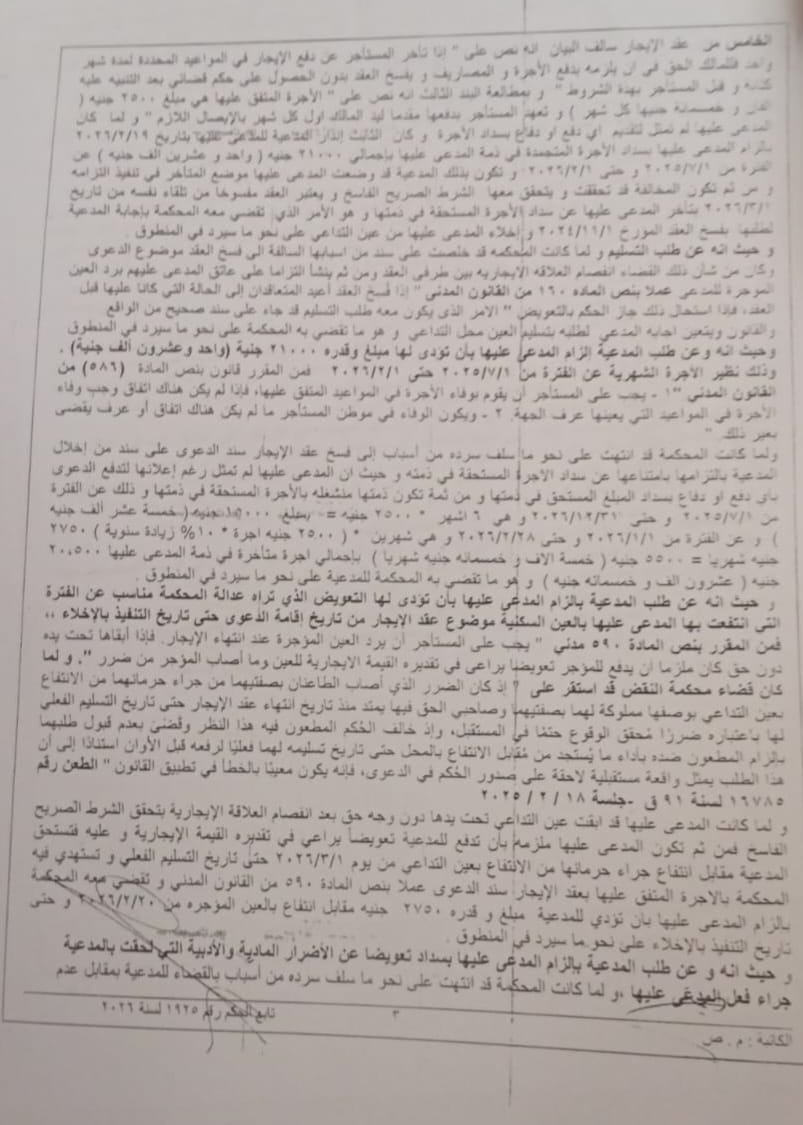 الخامس من عقد الإيجار سالف البيان انه نص على " إذا تأخر المستأجر عن دفع الإيجار في المواعيد المحددة لمدة شهر
واحد فللمالك الحق في ان يلزمه بدفع الأجرة و المصاريف و يفسخ العقد بدون الحصول على حكم قضائي بعد التنبيه عليه
كتابة و قبل المستأجر بهذة الشروط " و بمطالعة البند الثالث انه نص على " الأجرة المتفق عليها هي مبلغ ٢٥٠٠ جنيه (
الفان و خمسمائة جنيها كل شهر ) و تعهد المستأجر بدفعها مقدما ليد المالك اول كل شهر بالإيصال اللازم " و لما كان
المدعى عليها لم تمثل لتقديم اي دفع او دفاع بسداد الأجرة و كان الثالث إنذار المدعية للمدعى عليها بتاريخ ٢٠٢٦/٢/١٩
بالزام المدعى عليها بسداد الأجرة المتجمدة في ذمة المدعى عليها بإجمالي ٢١٠٠٠ جنيه ( واحد و عشرين الف جنيه ) عن
الفترة من ٢٠٢٥/٧/١ و حتى ٢٠٢٦/٢/١ و تكون بذلك المدعية قد وضعت المدعى عليها موضع المتأخر في تنفيذ التزامه
و من ثم تكون المخالفة قد تحققت و يتحقق معها الشرط الصريح الفاسخ و يعتبر العقد مفسوخا من تلقاء نفسه من تاريخ
٢٠٢٦/٣/١ بتأخر المدعى عليها عن سداد الأجرة المستحقة في ذمتها و هو الأمر الذي تقضي معه المحكمة بإجابة المدعية
لطلبها بفسخ العقد المورخ ٢٠٢٤/١١/١ و إخلاء المدعى عليها من عين التداعي على نحو ما سيرد في المنطوق .
و حيث انه عن طلب التسليم و لما كانت المحكمه قد خلصت على سند من اسبابها السالفة الى فسخ العقد موضوع الدعوى
وكان من شأن ذلك القضاء انفصام العلاقه الايجاريه بين طرفى العقد ومن ثم ينشأ التزاما على عاتق المدعى عليهم برد العين
الموجرة للمدعى عملا بنص الماده ١٦٠ من القانون المدنى " إذا فسخ العقد أعيد المتعاقدان إلى الحالة التي كانا عليها قبل
العقد، فإذا استحال ذلك جاز الحكم بالتعويض " الامر الذى يكون معه طلب التسليم قد جاء على سند صحيح من الواقع
والقانون ويتعين اجابه المدعى لطلبه بتسليم العين محل التداعي و هو ما تقضي به المحكمة على نحو ما سيرد في المنطوق
وحيث انه وعن طلب المدعية إلزام المدعى عليها بأن تؤدى لها مبلغ وقدره ٢١٠٠٠ جنية (واحد وعشرون ألف جنية) .
وذلك نظير الأجرة الشهرية عن الفترة من ٢٠٢٥/٧/١ حتى ٢٠٢٦/٢/١ فمن المقرر قانون بنص المادة (٥٨٦) من
القانون المدني "١ - يجب على المستأجر أن يقوم بوفاء الأجرة في المواعيد المتفق عليها، فإذا لم يكن هناك اتفاق وجب وفاء
الأجرة في المواعيد التي يعينها عرف الجهة. ٢ - ويكون الوفاء في موطن المستأجر ما لم يكن هناك اتفاق أو عرف يقضى
بغير ذلك. "
ولما كانت المحكمة قد انتهت على نحو ما سلف سرده من أسباب إلى فسخ عقد الإيجار سند الدعوى على سند من إخلال
المدعية بالتزامها بامتناعها عن سداد الأجرة المستحقة في ذمته و حيث ان المدعى عليها لم تمثل رغم إعلانها لتدفع الدعوى
باي دفع او دفاع بسداد المبلغ المستحق في ذمتها و من ثمة تكون ذمتها منشغله بالأجرة المستحقة في ذمتها و ذلك عن الفترة
من ٢٠٢٥/٧/١ و حتى ٢٠٢٦/١٢/٣١ و هي ٦ اشهر * ٢٥٠٠ جنيه = بمبلغ ١٥٠٠٠ جنيه ( خمسة عشر الف جنيه
) و عن الفترة من ٢٠٢٦/١/١ و حتى ٢٠٢٦/٢/٢٨ و هي شهرين * ( ٢٥٠٠ جنيه اجرة * ١٠% زيادة سنوية ) ٢٧٥٠
جنيه شهريا = ٥٥٠٠ جنيه ( خمسة الاف و خمسمائه جنيه شهريا ) بإجمالي اجرة متأخرة في ذمة المدعى عليها ٢٠,٥٠٠
جنيه ( عشرون الف و خمسمائه جنيه ) و هو ما تقضي به المحكمة للمدعية على نحو ما سيرد في المنطوق .
و حيث انه عن طلب المدعية بالزام المدعى عليها بأن تؤدى لها التعويض الذي تراه عدالة المحكمة مناسب عن الفترة
التى انتفعت بها المدعى عليها بالعين السكنية موضوع عقد الإيجار من تاريخ إقامة الدعوى حتى تاريخ التنفيذ بالإخلاء ،،
فمن المقرر بنص المادة ٥٩٠ مدني " يجب على المستأجر أن يرد العين المؤجرة عند انتهاء الإيجار. فإذا أبقاها تحت يده
دون حق كان ملزما ان يدفع للمؤجر تعويضا يراعى في تقديره القيمة الايجارية للعين وما أصاب المؤجر من ضرر ". و لما
كان قضاء محكمة النقض قد استقر على " إذ كان الضرر الذي أصاب الطاعنان بصفتيهما من جراء حرمانهما من الانتفاع
بعين التداعي بوصفها مملوكة لهما بصفتيهما وصاحبي الحق فيها يمتد منذ تاريخ انتهاء عقد الإيجار حتى تاريخ التسليم الفعلي
لها باعتباره ضررًا مُحقق الوقوع حتمًا في المستقبل، وإذ خالف الحُكم المطعون فيه هذا النظر وقضى بعدم قبول طلبهما
بإلزام المطعون ضده بأداء ما يُستجد من مُقابل الانتفاع بالمحل حتى تاريخ تسليمه لهما فعليًا لرفعه قبل الأوان استنادًا إلى أن
هذا الطلب يمثل واقعة مستقبلية لاحقة على صدور الحُكم في الدعوى، فإنه يكون معيبًا بالخطأ في تطبيق القانون " الطعن رقم
١٦٧٨٥ لسنة ٩١ ق -جلسة ١٨ / ٢ / ٢٠٢٥
و لما كانت المدعى عليها قد ابقت عين التداعي تحت يدها دون وجه حق بعد انفصام العلاقة الإيجارية بتحقق الشرط الصريح
الفاسخ فمن ثم تكون المدعى عليها ملزمه بأن تدفع للمدعية تعويضاً يراعي في تقديره القيمة الإيجارية و عليه فتستحق
المدعية مقابل انتفاع جراء حرمانها من الانتفاع بعين التداعي من يوم ٢٠٢٦/٣/١ حتى تاريخ التسليم الفعلي و تستهدي فيه
المحكمة بالاجرة المتفق عليها بعقد الإيجار سند الدعوى عملا بنص المادة ٥٩٠ من القانون المدني و تقضي معه المحكمة
بالزام المدعى عليها بان تؤدي للمدعية مبلغ و قدره ٢٧٥٠ جنيه مقابل انتفاع بالعين المؤجره من ٢٠٢٦/٢/٢٠ و حتى
تاريخ التنفيذ بالإخلاء على نحو ما سيرد في المنطوق .
و حيث انه و عن طلب المدعية بالزام المدعى عليها بسداد تعويضا عن الأضرار المادية والأدبية التي لحقت بالمدعية
جراء فعل المدعى عليها ، و لما كانت المحكمة قد انتهت على نحو ما سلف سرده من أسباب بالقضاء للمدعية بمقابل عدم
الكاتبة : م . ص
٣
تابع الحكم رقم ١٩٢٥ لسنة ٢٠٢٦